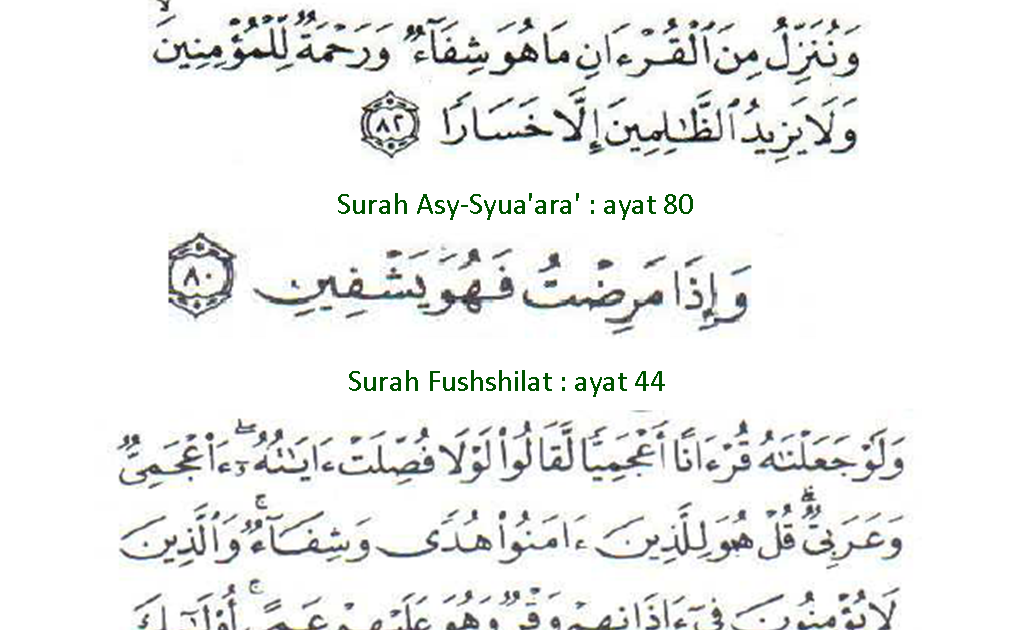 وَنُنَزِّلُ مِنَ ٱلْقُرْءَانِ مَا هُوَ شِفَآءٌ وَرَحْمَةٌ لِّلْمُؤْمِنِينَ
وَلَا يَزِيدُ ٱلظَّـٰلِمِينَ إِلَّا خَسَارًا ٨٢
Surah Asy-Syua'ara' : ayat 80
وَإِذَا مَرِضْتُ فَهُوَ يَشْفِينِ ٨٠
Surah Fushshilat : ayat 44
وَلَوْ جَعَلْنَـٰهُ قُرْءَانًا أَعْجَمِيًّا لَّقَالُوا۟ لَوْلَا فُصِّلَتْ ءَايَـٰتُهُۥٓ ۖ ءَا۬عْجَمِىٌّ
وَعَرَبِىٌّ ۗ قُلْ هُوَ لِلَّذِينَ ءَامَنُوا۟ هُدًى وَشِفَآءٌ ۚ وَٱلَّذِينَ
لَا يُؤْمِنُونَ فِىٓ ءَاذَانِهِمْ وَقْرٌ وَهُوَ عَلَيْهِمْ عَمًى ۚ أُو۟لَـٰٓئِكَ